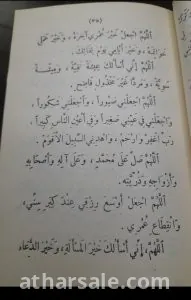 (٣٥)
اللَّهُمَّ اجْعَلْ خَيْرَ عُمْرِي آخِرَهُ ، وَخَيْرَ عَمَلِي
خَوَاتِمَهُ ، وَخَيْرَ أَيَّامِي يَوْمَ لِقَائِكَ .
اللَّهُمَّ إِنِّي أَسْأَلُكَ عِيشَةً نَقِيَّةً ، وَمِيتَةً
سَوِيَّةً ، وَمَرَدًّا غَيْرَ مَخْذُولٍ فَاضِحٍ .
اللَّهُمَّ اجْعَلْنِي صَبُوراً ، وَاجْعَلْنِي شَكُوراً ،
وَاجْعَلْنِي فِي عَيْنِي صَغِيراً وَفِي أَعْيُنِ النَّاسِ كَبِيراً
رَبِّ اغْفِرْ وَارْحَمْ ، وَاهْدِنِي السَّبِيلَ الأَقْوَمَ .
اللَّهُمَّ صَلِّ عَلَى مُحَمَّدٍ ، وَعَلَى آلِهِ وَأَصْحَابِهِ
وَأَزْوَاجِهِ وَذُرِّيَّتِهِ .
اللَّهُمَّ اجْعَلْ أَوْسَعَ رِزْقِي عِنْدَ كِبَرِ سِنِّي ،
وَانْقِطَاعِ عُمْرِي .
اللَّهُمَّ إِنِّي أَسْأَلُكَ خَيْرَ الْمَسْأَلَةِ ، وَخَيْرَ الدُّعَاءِ
atharsale.com